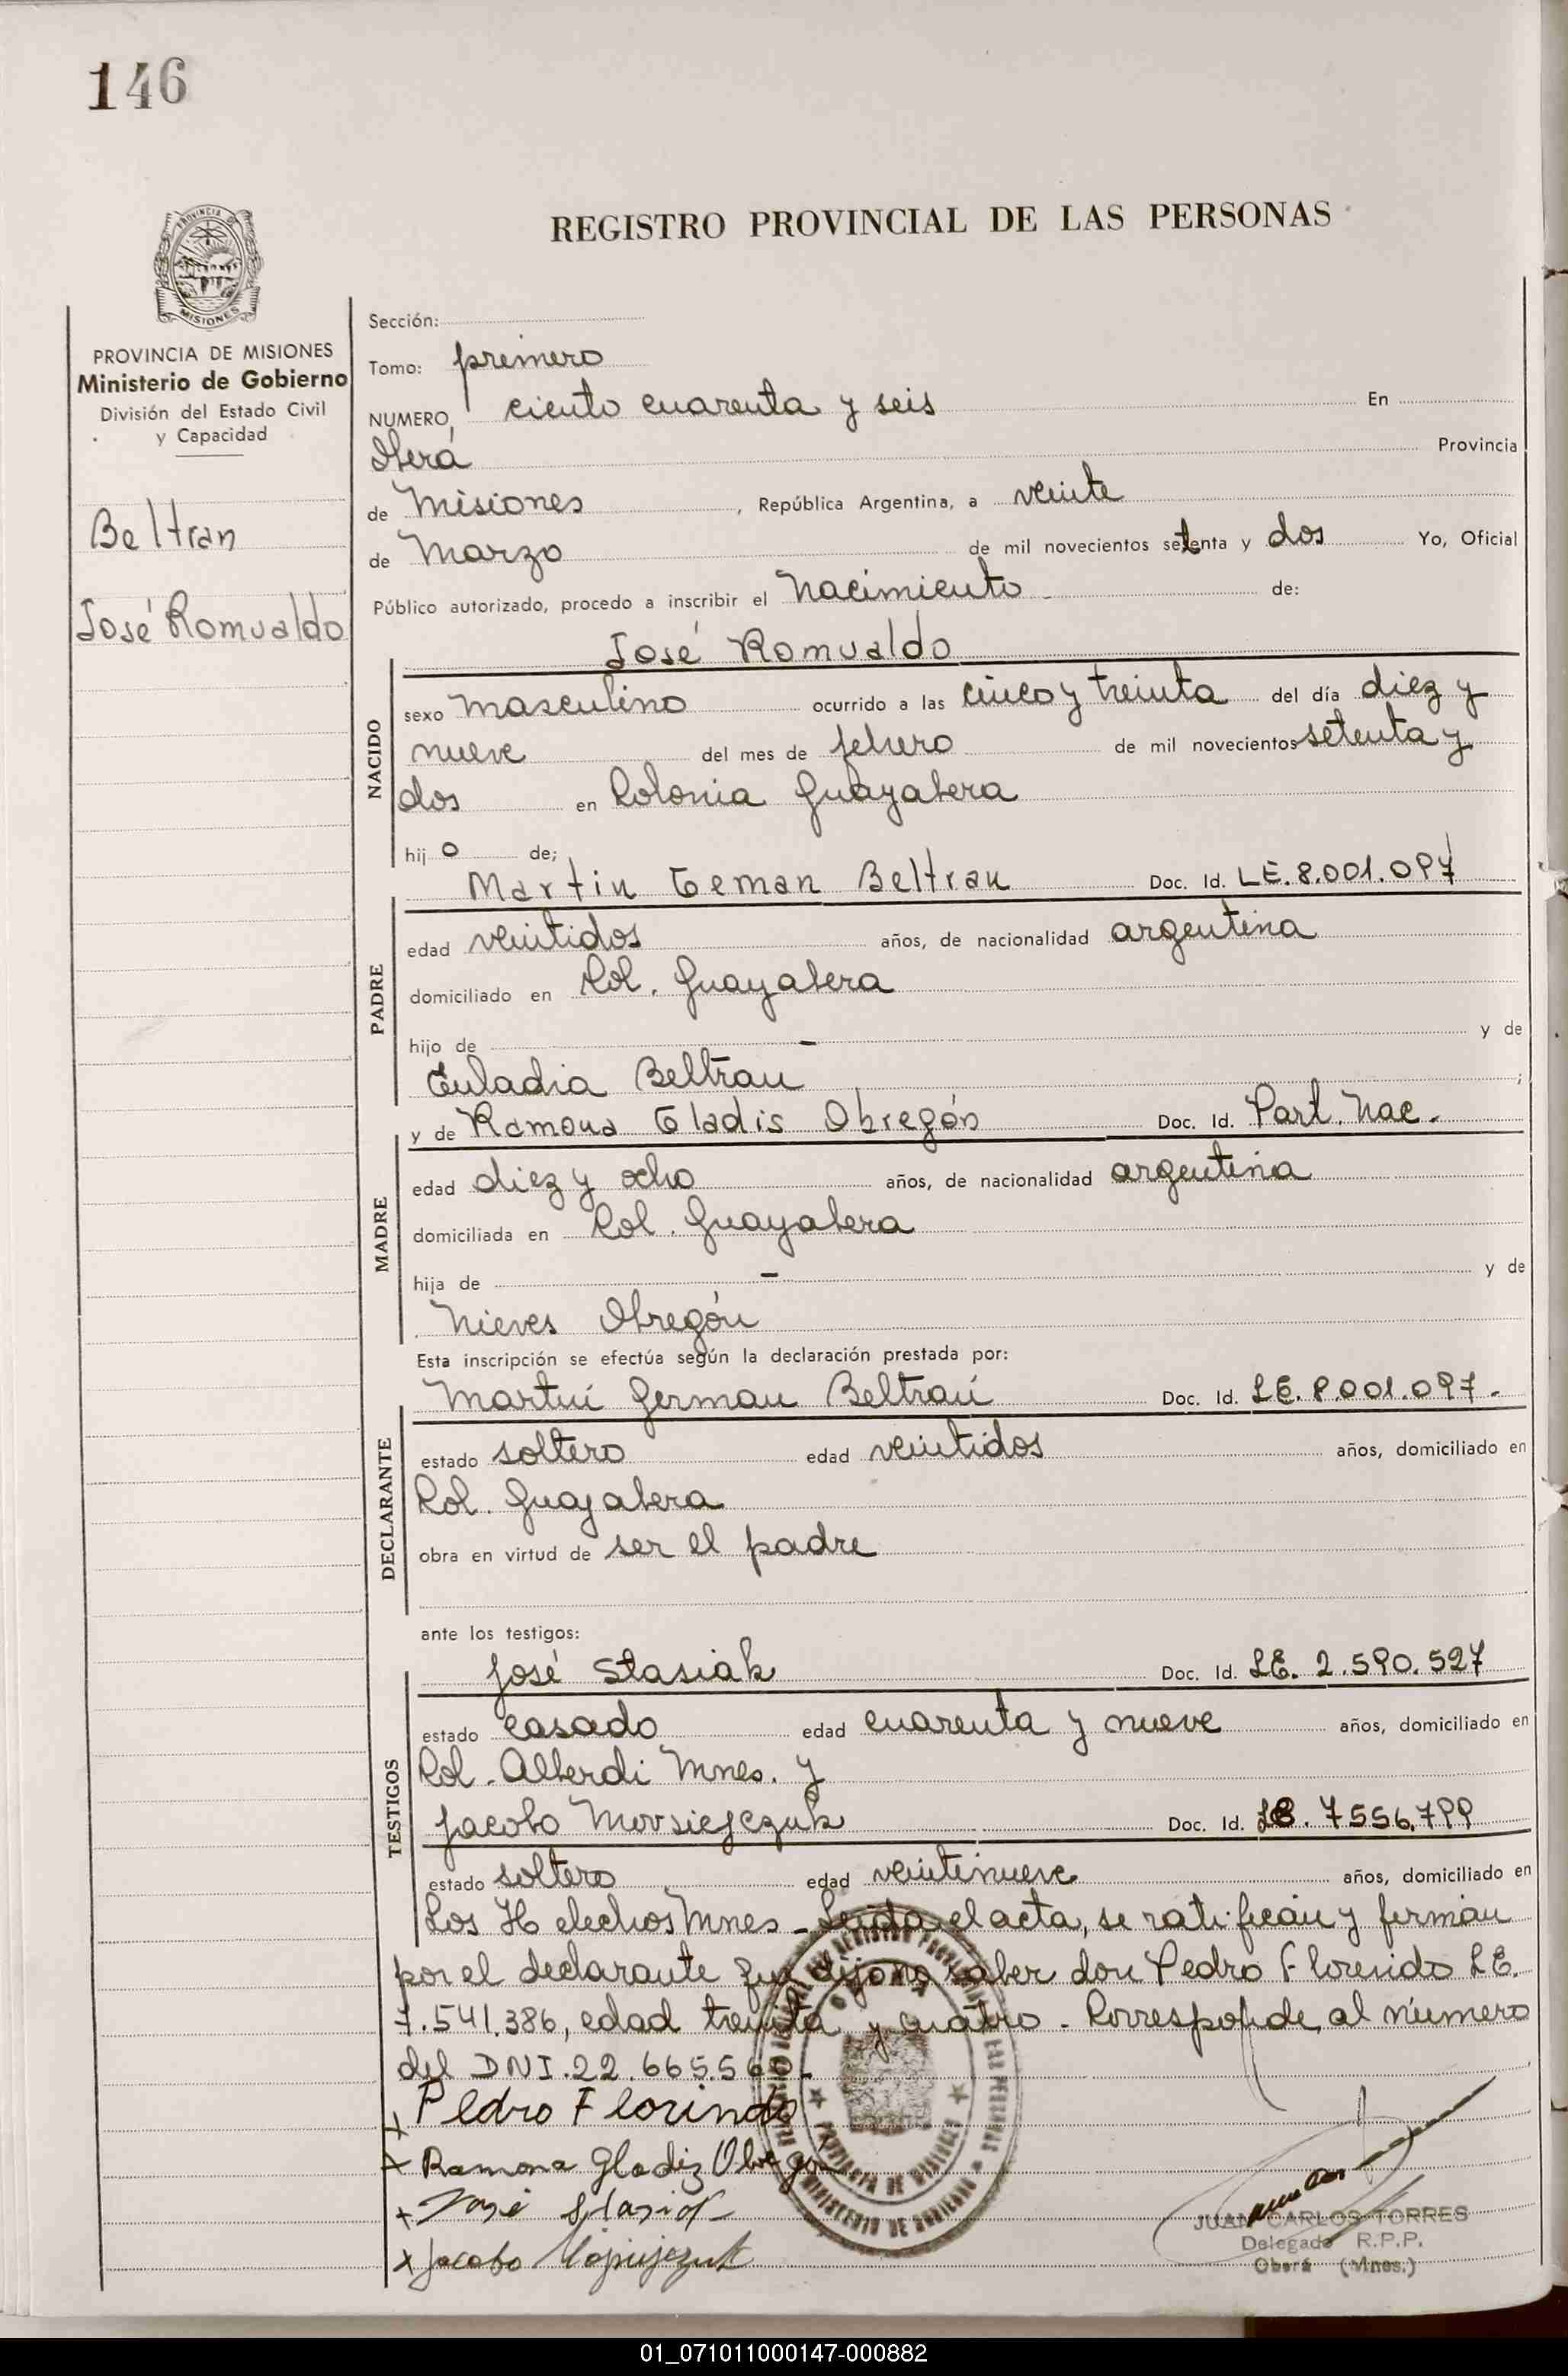 146
REGISTRO PROVINCIAL DE LAS PERSONAS
MISIONES
PROVINCIA DE MISIONES
Ministerio de Gobierno
División del Estado Civil
y Capacidad
Beltran
José Romualdo
Sección:
Tomo: primero
NUMERO, ciento cuarenta y seis En
Oberá Provincia
de Misiones, República Argentina, a veinte
de Marzo de mil novecientos setenta y dos Yo, Oficial
Público autorizado, procedo a inscribir el Nacimiento de:
José Romualdo
NACIDO
sexo masculino ocurrido a las cinco y treinta del día diez y
nueve del mes de febrero de mil novecientos setenta y
dos en Colonia Guayabera
hijo de;
Martin German Beltran Doc. Id. LE. 8.001.097
PADRE
edad veintidos años, de nacionalidad argentina
domiciliado en Col. Guayabera
hijo de - y de
Euladia Beltran ;
y de Ramona Gladis Obregón Doc. Id. Part. Nac.
MADRE
edad diez y ocho años, de nacionalidad argentina
domiciliada en Col. Guayabera
hija de - y de
Nieves Obregón
Esta inscripción se efectúa según la declaración prestada por:
Martín German Beltrán Doc. Id. LE. 8.001.097.-
DECLARANTE
estado soltero edad veintidos años, domiciliado en
Col. Guayabera
obra en virtud de ser el padre
ante los testigos:
José Stasiak Doc. Id. LE. 2.590.527
TESTIGOS
estado casado edad cuarenta y nueve años, domiciliado en
Col. Alberdi Mnes. y
Jacobo Doc. Id. LE. 7556.799
estado soltero edad veintinueve años, domiciliado en
Los Helechos Mnes - Leida el acta, se ratifican y firman
por el declarante que dijo no saber don Pedro Florindo LE.
7.541.386, edad treinta y cuatro - Corresponde al número
del DNI. 22.665.560-
x Pedro Florindo
x Ramona Gladiz Obregón
x José Stasiak
x Jacobo
PROVINCIA DE MISIONES
MINISTERIO DE GOBIERNO
JUAN CARLOS TORRES
Delegado R.P.P.
Oberá (Mnes.)
01_071011000147-000882